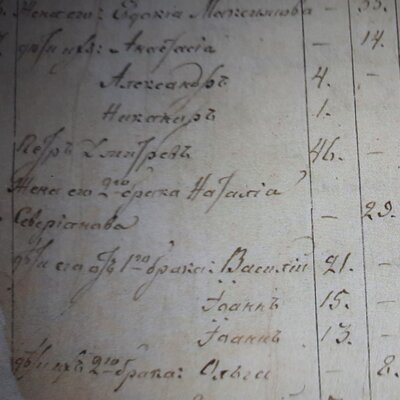 Жена его: Евдокія Максимова — 33.
дѣти ихъ: Анастасія — 14.
Александръ 4. —
Никаноръ 1. —
Петръ Дмитревъ 46. —
Жена его 2го брака Наталія
Северіанова — 29.
дѣти его отъ 1го брака: Василій 21. —
Іоаннъ 15. —
Іоаннъ 13. —
дѣти ихъ 2го брака: Ольга — 8.